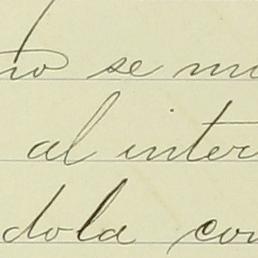 no se mo
al inter
dola con